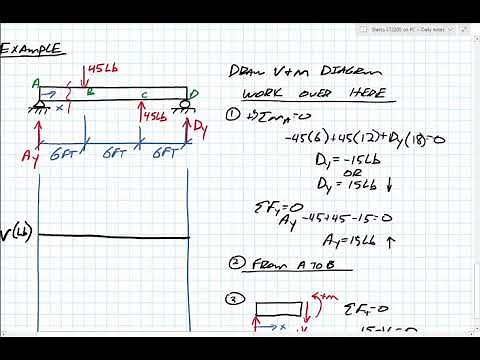 Statics ET2200 on PC – Daily notes
EXAMPLE
45Lb
A
B
C
D
x
45Lb
Ay
Dy
6FT 6FT 6FT
V(Lb)
DRAW V+M DIAGRAM
WORK OVER HERE
① +↺ΣMA=0
-45(6)+45(12)+Dy(18)=0
Dy=-15Lb
OR
Dy=15Lb ↓
ΣFy=0
Ay-45+45-15=0
Ay=15Lb ↑
② FROM A TO B
③
+M
x
V
ΣFy=0
15-V=0